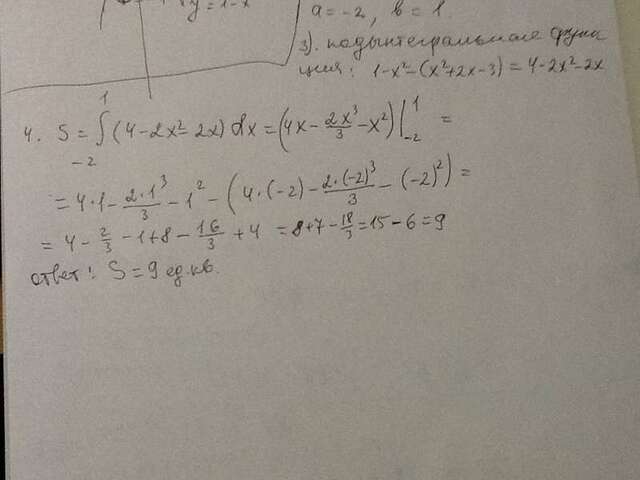 y = 1 - x
a = -2, b = 1.
3). подынтегральная функ
ция: 1-x²-(x²+2x-3) = 4-2x²-2x
4. S = ∫₋₂¹ (4-2x²-2x) dx = (4x - 2x³/3 - x²)|₋₂¹ =
= 4·1 - 2·1³/3 - 1² - (4·(-2) - 2·(-2)³/3 - (-2)²) =
= 4 - 2/3 - 1 + 8 - 16/3 + 4 = 8+7 - 18/3 = 15 - 6 = 9
ответ: S = 9 ед.кв.